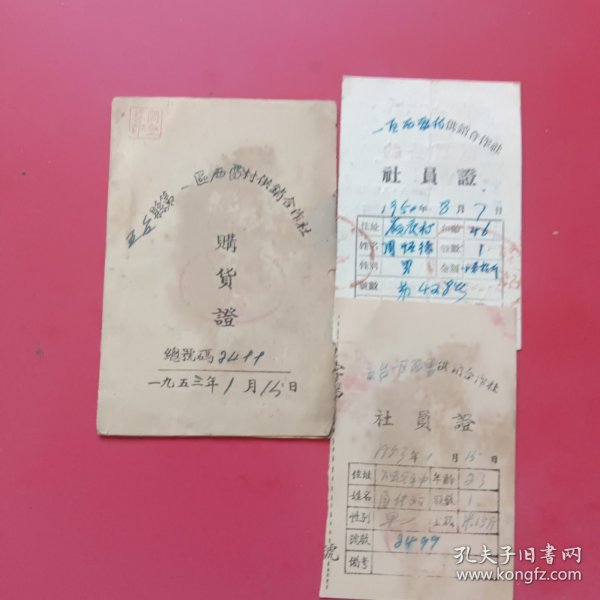 五台縣第一區西雷村供銷合作社
購貨證
總號碼2499
一九五三年1月15日
一區西雷村供銷合作社
社員證
1950年8月7日
住址 年齡 46
姓名 周恒 股數 1
性别 男 金額
號數 第428號
五台一區西雷供銷合作社
社員證
1953年1月15日
住址 年齡 23
姓名 股數 1
性别 男
號數 2499
備考
號
孔夫子旧書网
www.kongfz.com